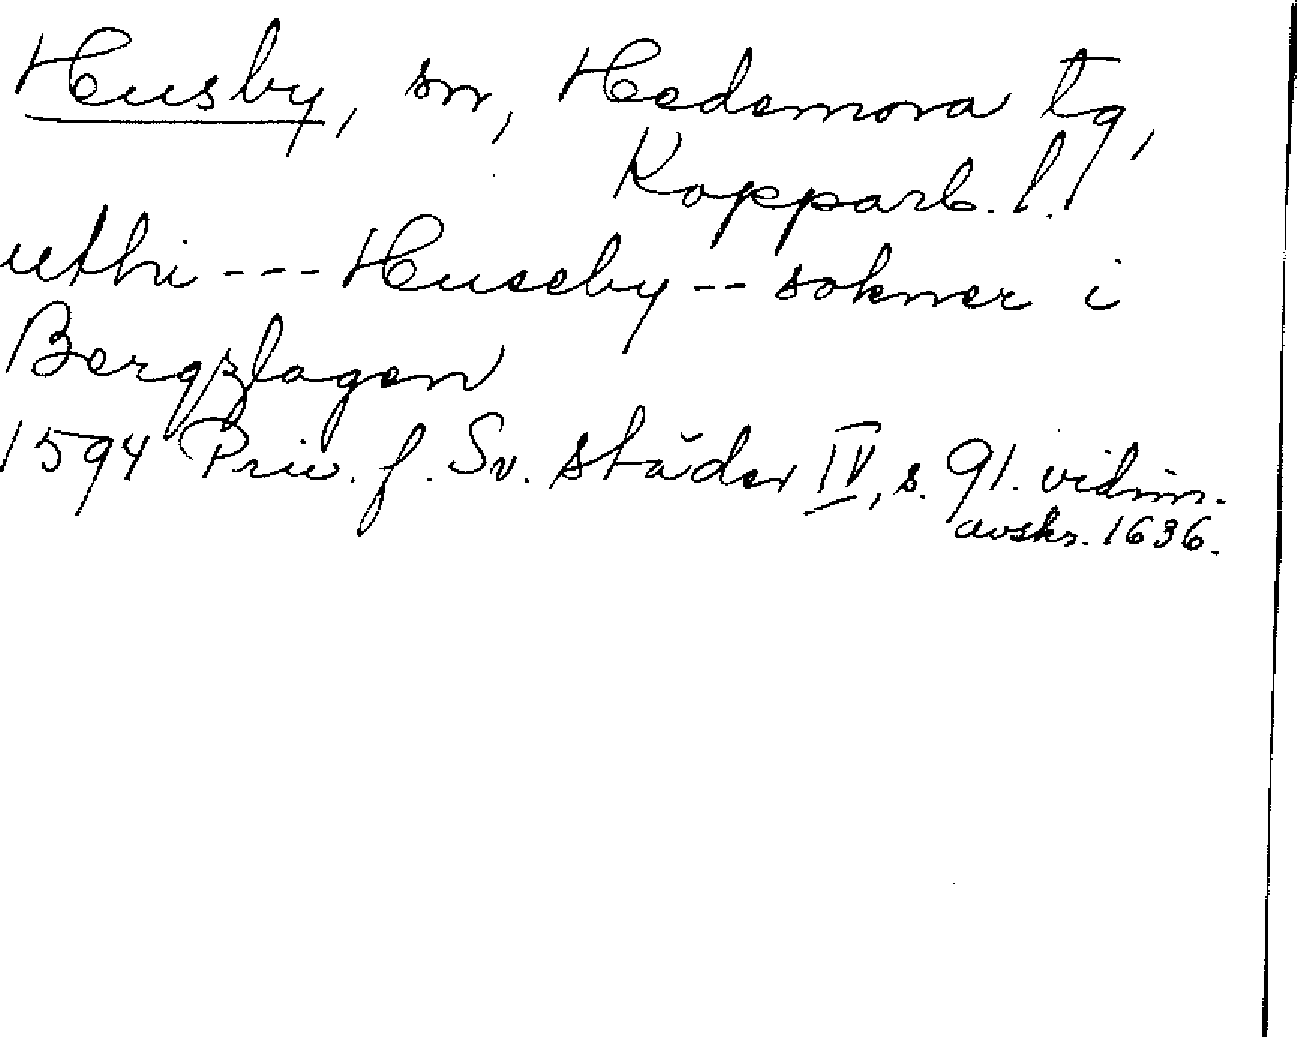 Husby, sn, Hedemora tg,
Kopparb. l.
uthi --- Huseby -- sokner i
Bergzlagen
1594 Priv. f. Sv. städer IV, s. 91. vidim.
avskr. 1636.